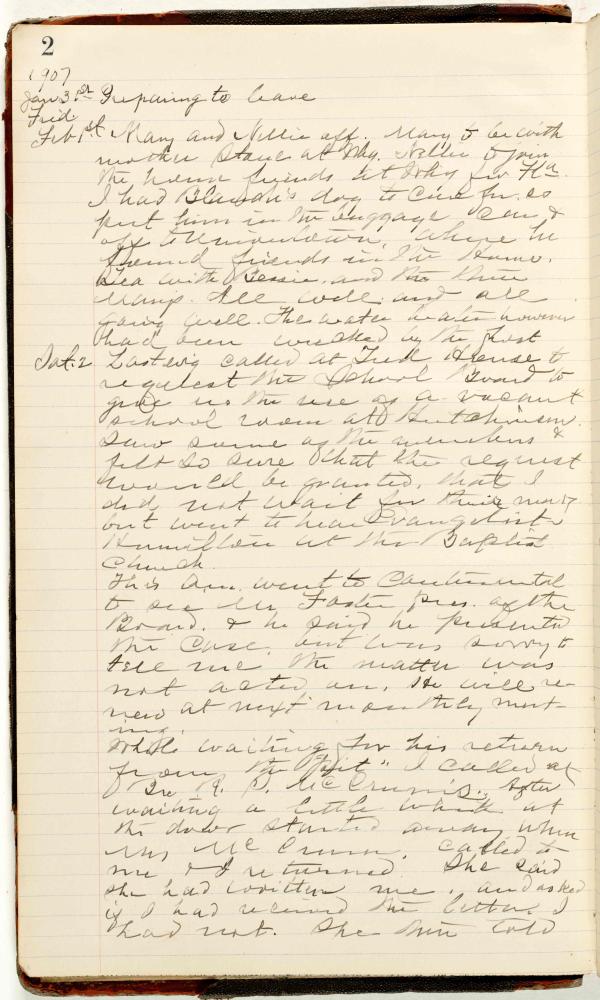 2
1907
Jan 31st Preparing to leave
Frid.
Feb 1st Mary and Nellie off. Mary to be with
mother Stone at Why. Nellie to join
the home friends at Why for Fla.
I had Blanch's dog to care for, so
put him in the baggage car &
off to Uniontown, where he
found friends in the Home.
Tea with Bessie, and the three
. All well, and all
going well. The water heater however
had been wrecked by the frost
Sat. 2 Last evig called at Fred House to
request the School Board to
give us the use of a vacant
school room at Hutchinson.
Saw some of the members &
felt so sure that the request
would be granted, that I
did not wait for their meetg
but went to hear Evangelist
Hamilton at the Baptist
Church.
This a.m. went to Continental
to see Mr Foster pres. of the
Board. & he said he presented
the case, but was sorry to
tell me the matter was
not acted on. He will re-
new at next monthly meet-
ing.
While waiting for his return
from the "pit" I called at
Dr R. P. McCrum's. After
waiting a little while at
the door started away when
Mrs McCrum, called to
me & I returned. She said
she had written me, and asked
if I had received the letter. I
had not. She then told